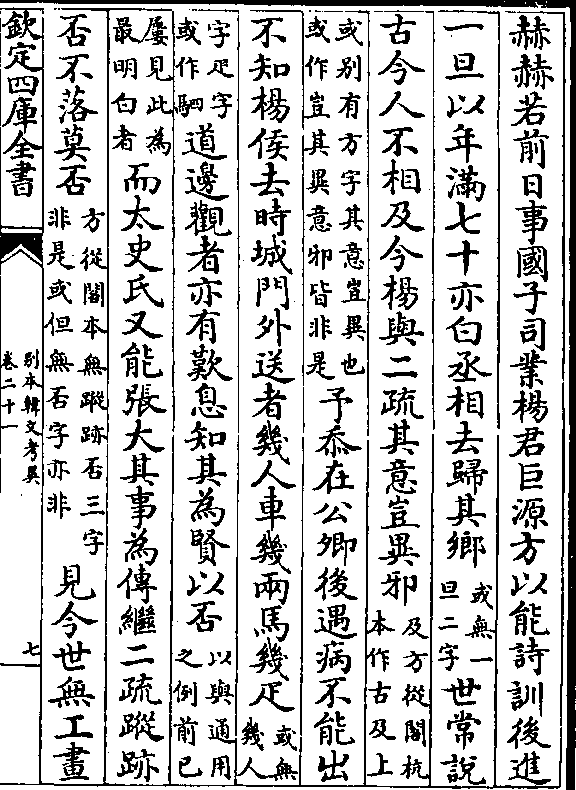 赫赫若前日事國子司業楊君巨源方以能詩訓後進
一旦以年滿七十亦白丞相去歸其鄉
或無一
旦二字
世常說
古今人不相及今楊與二疏其意豈異邪
及方從閣杭
本作古及上
或别有方字其意豈異也
或作豈其異意邪皆非是
予忝在公卿後遇病不能出
不知楊侯去時城門外送者幾人車幾兩馬幾疋
或無
幾人
字疋字
或作駟
道邊觀者亦有歎息知其為賢以否
以與通用
之例前已
屢見此為
最明白者
而太史氏又能張大其事為傳繼二疏蹤跡
否不落莫否
方從閣本無蹤跡否三字
非是或但無否字亦非
見今世無工畫
欽定四庫全書
别本韓文考異
卷二十一
七